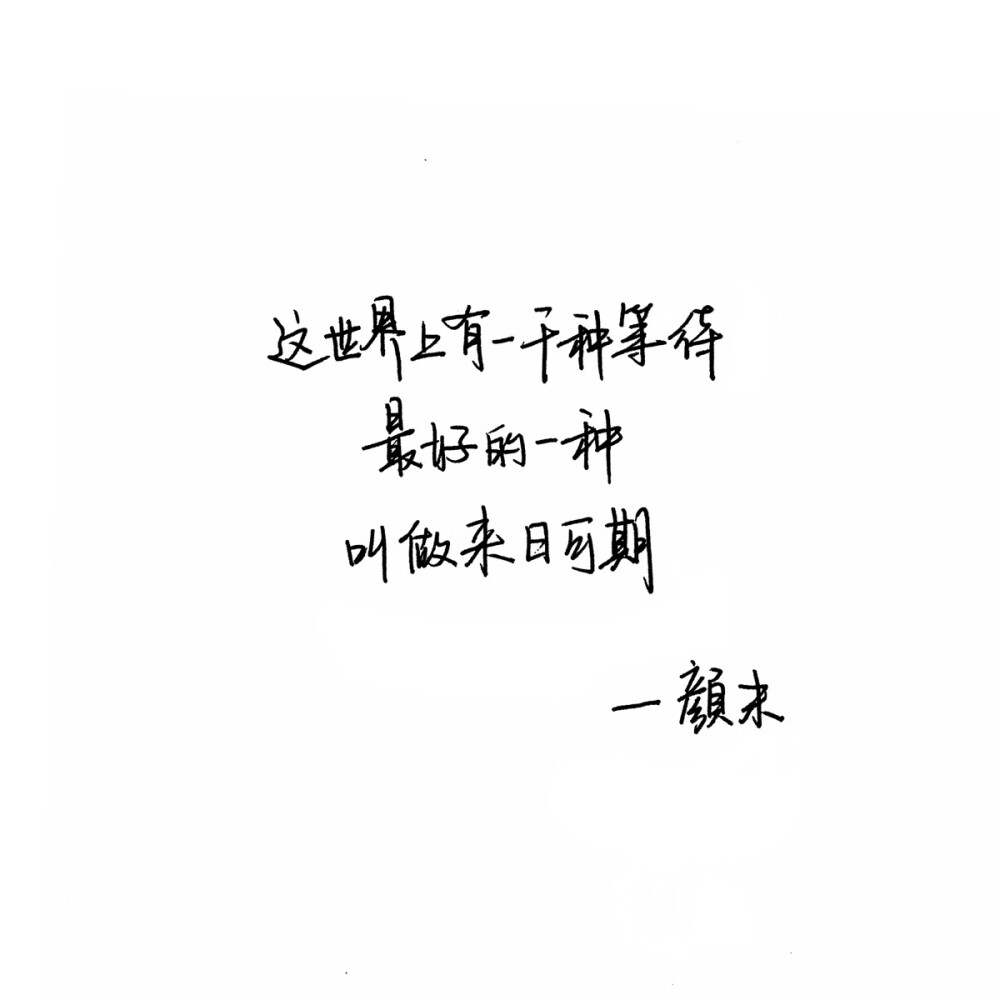 这世界上有一千种等待
最好的一种
叫做来日可期
—顔末